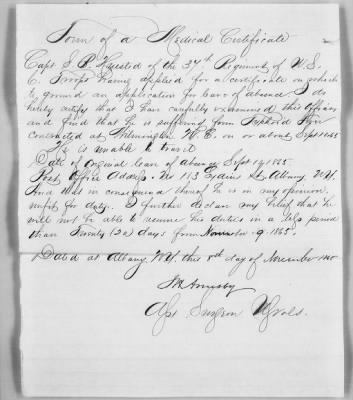 Form of a Medical Certificate
Capt S. P. of the 37th Regiment of U.S.
C. Troops having applied for a certificate on which
to ground an application for leave of absence I do
hereby certify that I have carefully examined this Officer
and find that he is suffering from Typhoid
contracted at Wilmington N.C. on or about Sept 1865
He is unable to travel
Date of original leave of absence Sept 1865
Post Office Address No 113 St Albany N.Y.
And was in consequence thereof he is in my opinion
unfit for duty. I further declare my belief that he
will not be able to resume his duties in a less period
than Twenty (20) days from November 9. 1865.
Dated at Albany N.Y. this day of November 1865
Armsby
Act Surgeon U.S. Vols.